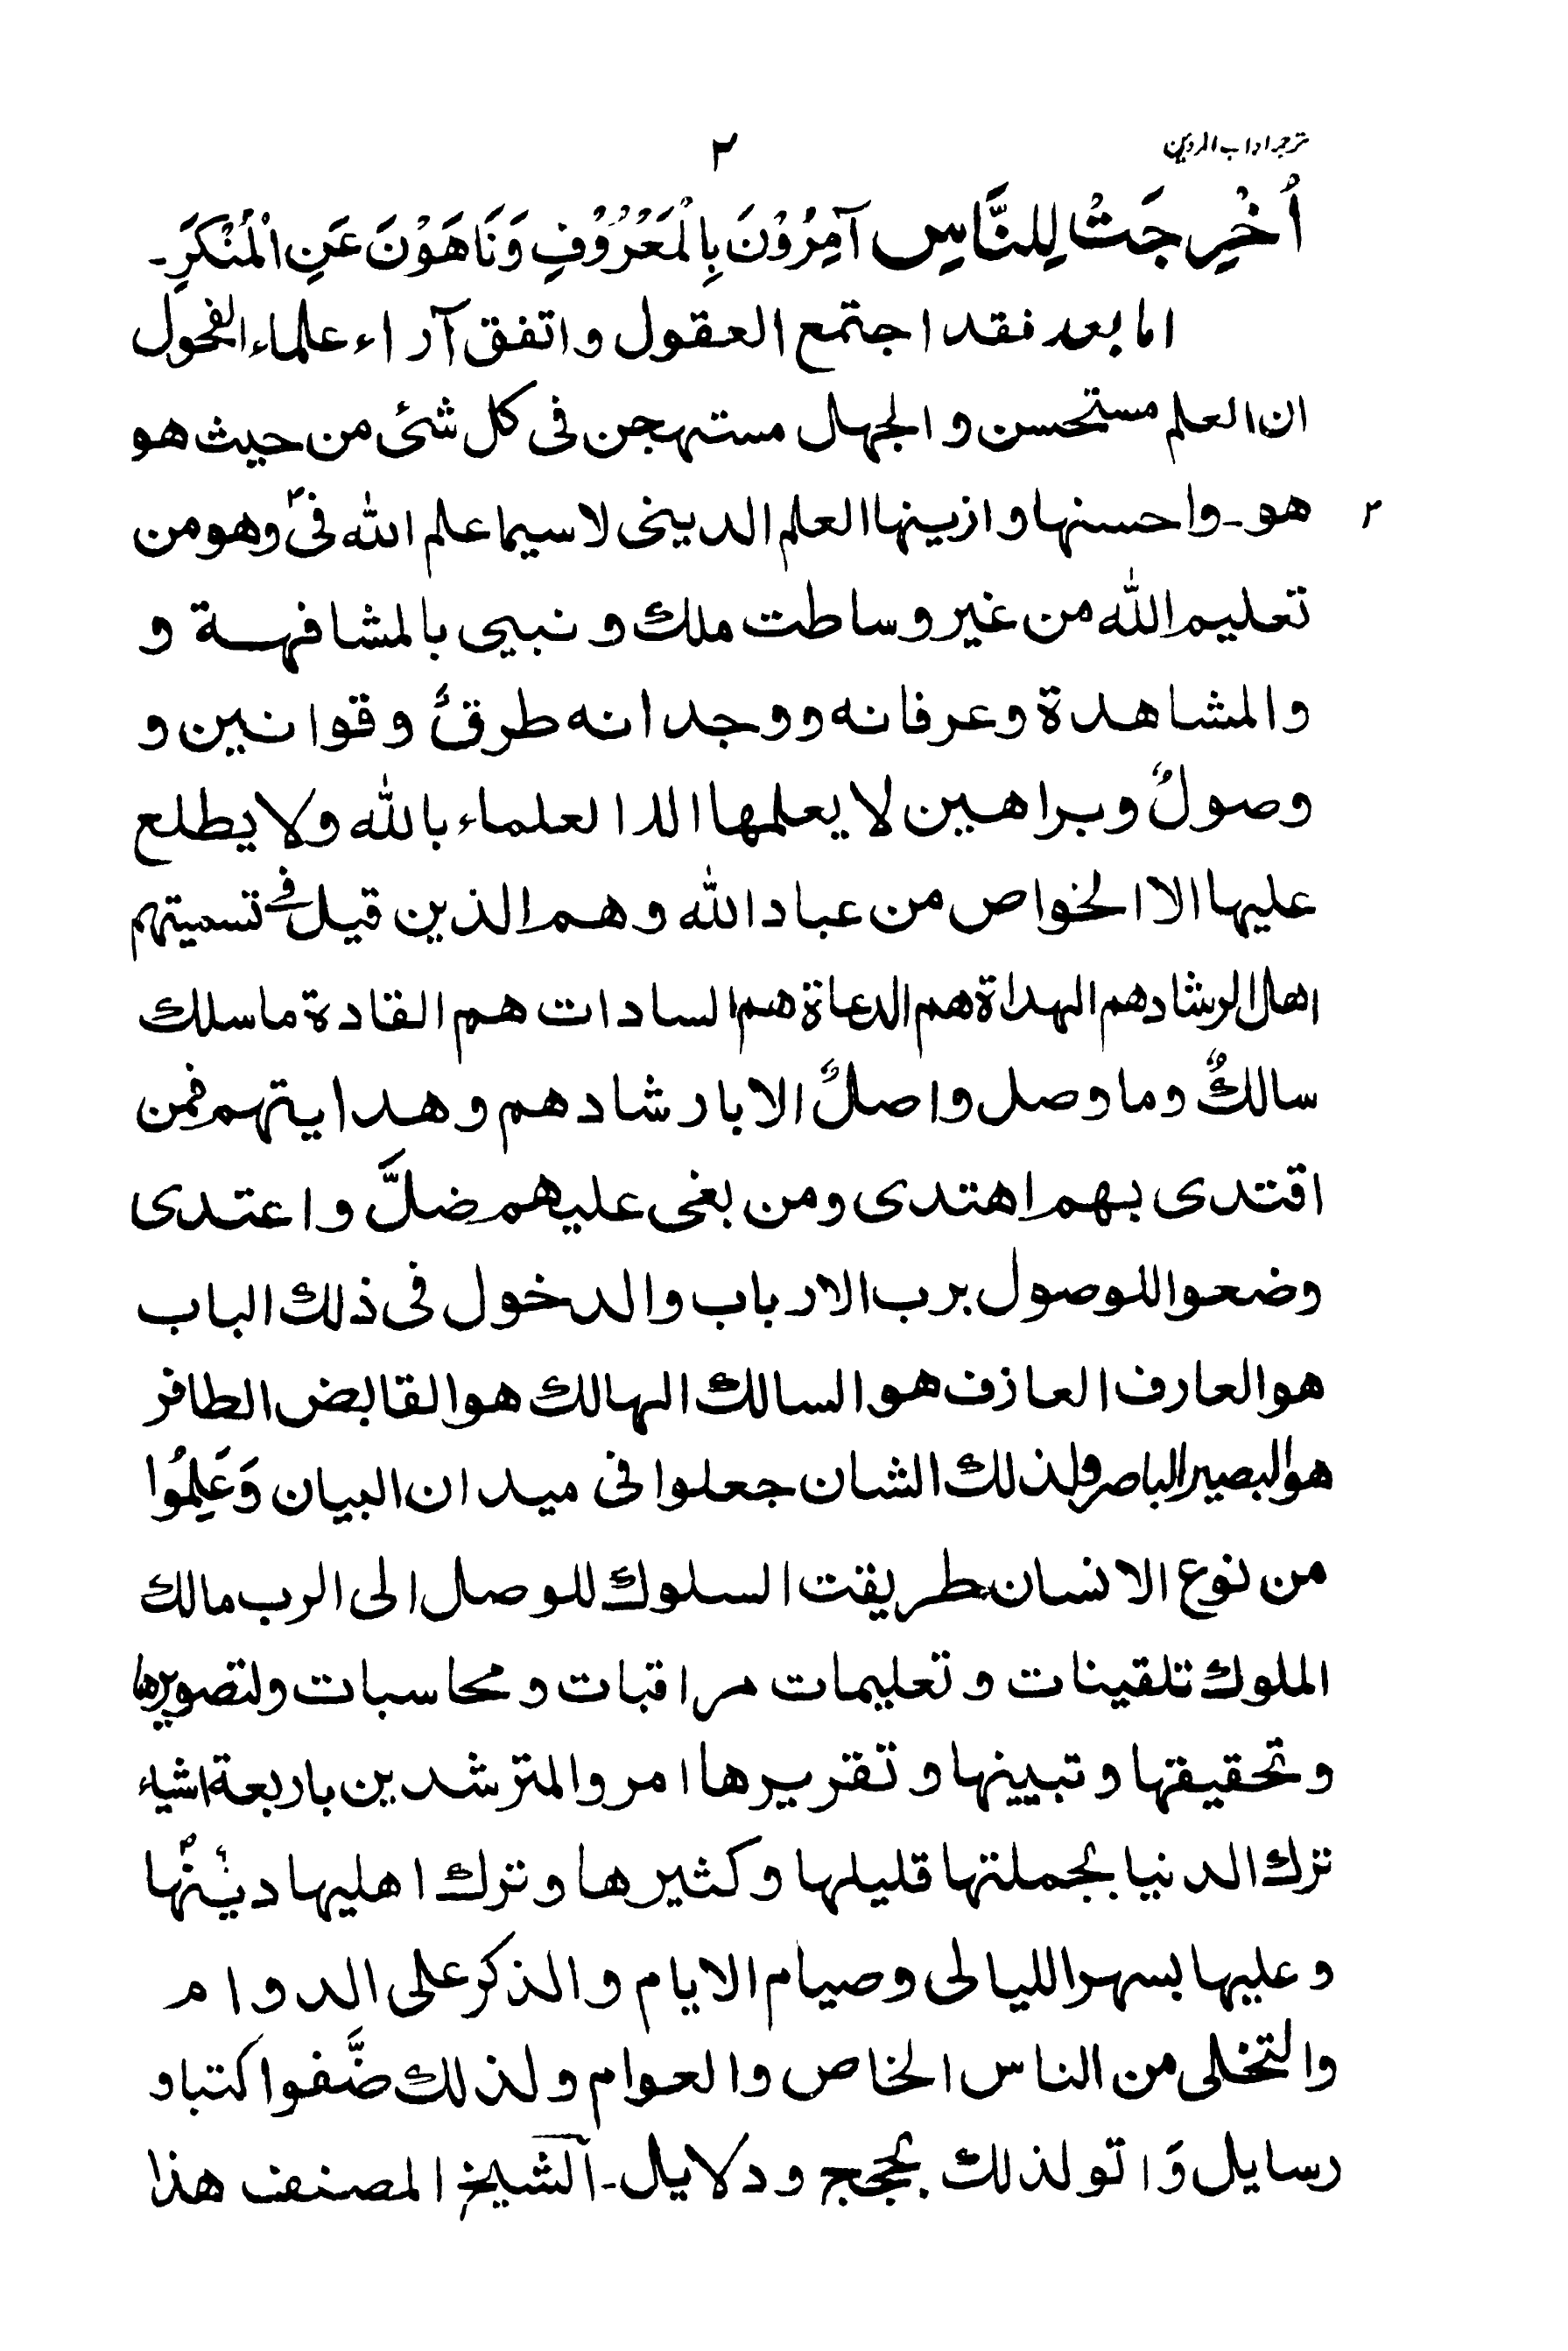 ترجمہ اداب المریدین
۲
اُخْرِجَتْ لِلنَّاسِ آمِرُوْنَ بِالْمَعْرُوْفِ وَنَاهَوْنَ عَنِ الْمُنْكَرِ۔
اما بعد فقد اجتمع العقول واتفق آراء علماء الفحول
ان العلم مستحسن و الجهل مستهجن فى كل شئ من حيث هو
هو۔ واحسنها وازينها العلم الدينى لاسيما علم الله فىٌ وهو من
۲
تعليم الله من غير وساطت ملك و نبيى بالمشافهة و
والمشاهدة وعرفانه ووجدانه طرقٌ وقوانين و
وصولٌ وبراهين لا يعلمها الا العلماء بالله ولا يطلع
عليها الا الخواص من عباد الله وهم الذين قيل فى تسميتهم
اهل الرشادهم الهداة هم الدعاة هم السادات هم القادة ما سلك
سالكٌ وما وصل واصلٌ الا بارشادهم وهدايتهم فمن
اقتدى بهم اهتدى ومن بغى عليهم ضلَّ واعتدى
وضعوا للوصول برب الارباب والدخول فى ذلك الباب
هو العارف العازف هو السالك الهالك هو القابض الطافر
هو البصير الباصر ولذلك الشان جعلوا فى ميدان البيان وَعَلِمُوا
من نوع الانسان طريقت السلوك للوصل الى الرب مالك
الملوك تلقينات و تعليمات مراقبات و محاسبات ولتصويرها
وتحقيقها وتبيينها و تقريرها امروا لمترشدين باربعة اشياء
ترك الدنيا بجملتها قليلها وكثيرها وترك اهليها دينها
وعليها بسهر الليالى وصيام الايام والذكر على الدوام
والتخلى من الناس الخاص والعوام ولذلك ضَّفوا كتبا و
رسايل وَاتو لذلك بحجج ودلايل۔ الشيخ المصنف هذا